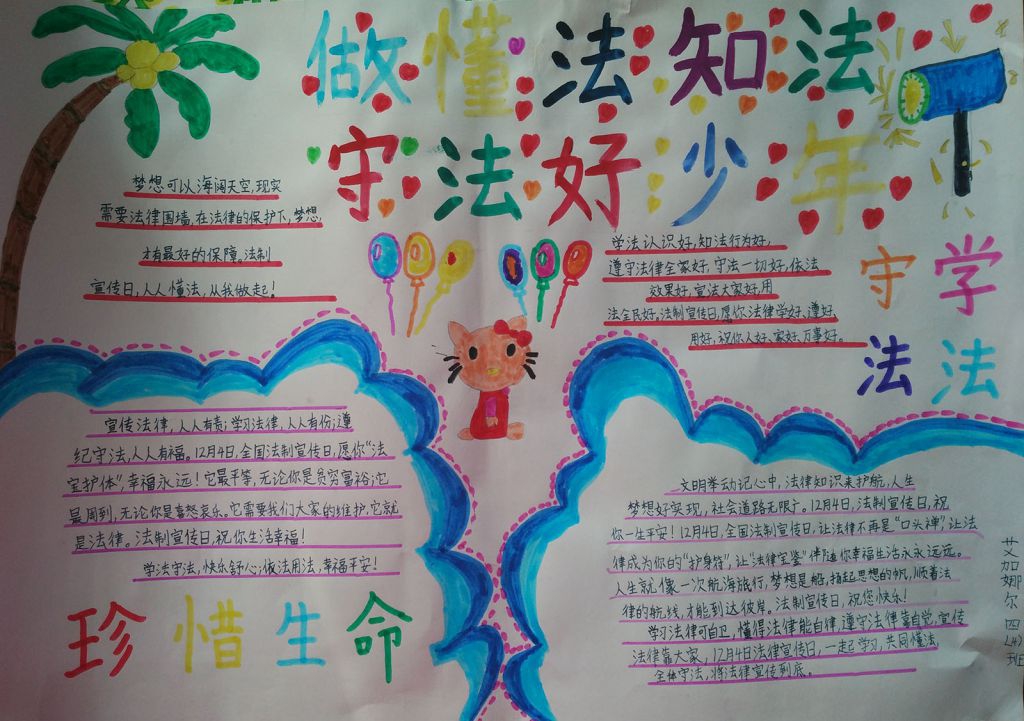 做懂法知法
守法好少年
梦想可以海阔天空,现实
需要法律围墙,在法律的保护下,梦想
才有最好的保障。法制
宣传日,人人懂法,从我做起!
学法认识好,知法行为好,
遵守法律全家好,守法一切好,依法
效果好,宣法大家好,用
法全民好。法制宣传日,愿你法律学好、遵好、
用好,祝你人好、家好、万事好。
守 学
法 法
宣传法律,人人有责;学习法律,人人有份;遵
纪守法,人人有福。12月4日,全国法制宣传日,愿你“法
宝护体”,幸福永远!它最平等,无论你是贫穷富裕;它
最周到,无论你是喜怒哀乐。它需要我们大家的维护,它就
是法律。法制宣传日,祝你生活幸福!
学法守法,快乐舒心;依法用法,幸福平安!
珍惜生命
文明举动记心中,法律知识来护航,人生
梦想好实现,社会道路无限广。12月4日,法制宣传日,祝
你一生平安!12月4日,全国法制宣传日,让法律不再是“口头禅”,让法
律成为你的“护身符”,让“法律宝鉴”伴随你幸福生活永永远远。
人生就像一次航海旅行,梦想是船,扬起思想的帆,顺着法
律的航线,才能到达彼岸。法制宣传日,祝您快乐!
学习法律可自卫,懂得法律能自律,遵守法律靠自觉,宣传
法律靠大家,12月4日法律宣传日,一起学习,共同懂法,
全体守法,将法律宣传到底。
艾加娜尔 四(4)班